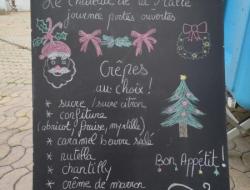 Le Château de la Malle
journée portes ouvertes
Crêpes
au choix!
* sucre / sucre citron
* confiture
(abricot, fraise, myrtille)
* caramel beurre salé
* nutella
* chantilly
* crème de marron
Bon Appétit!